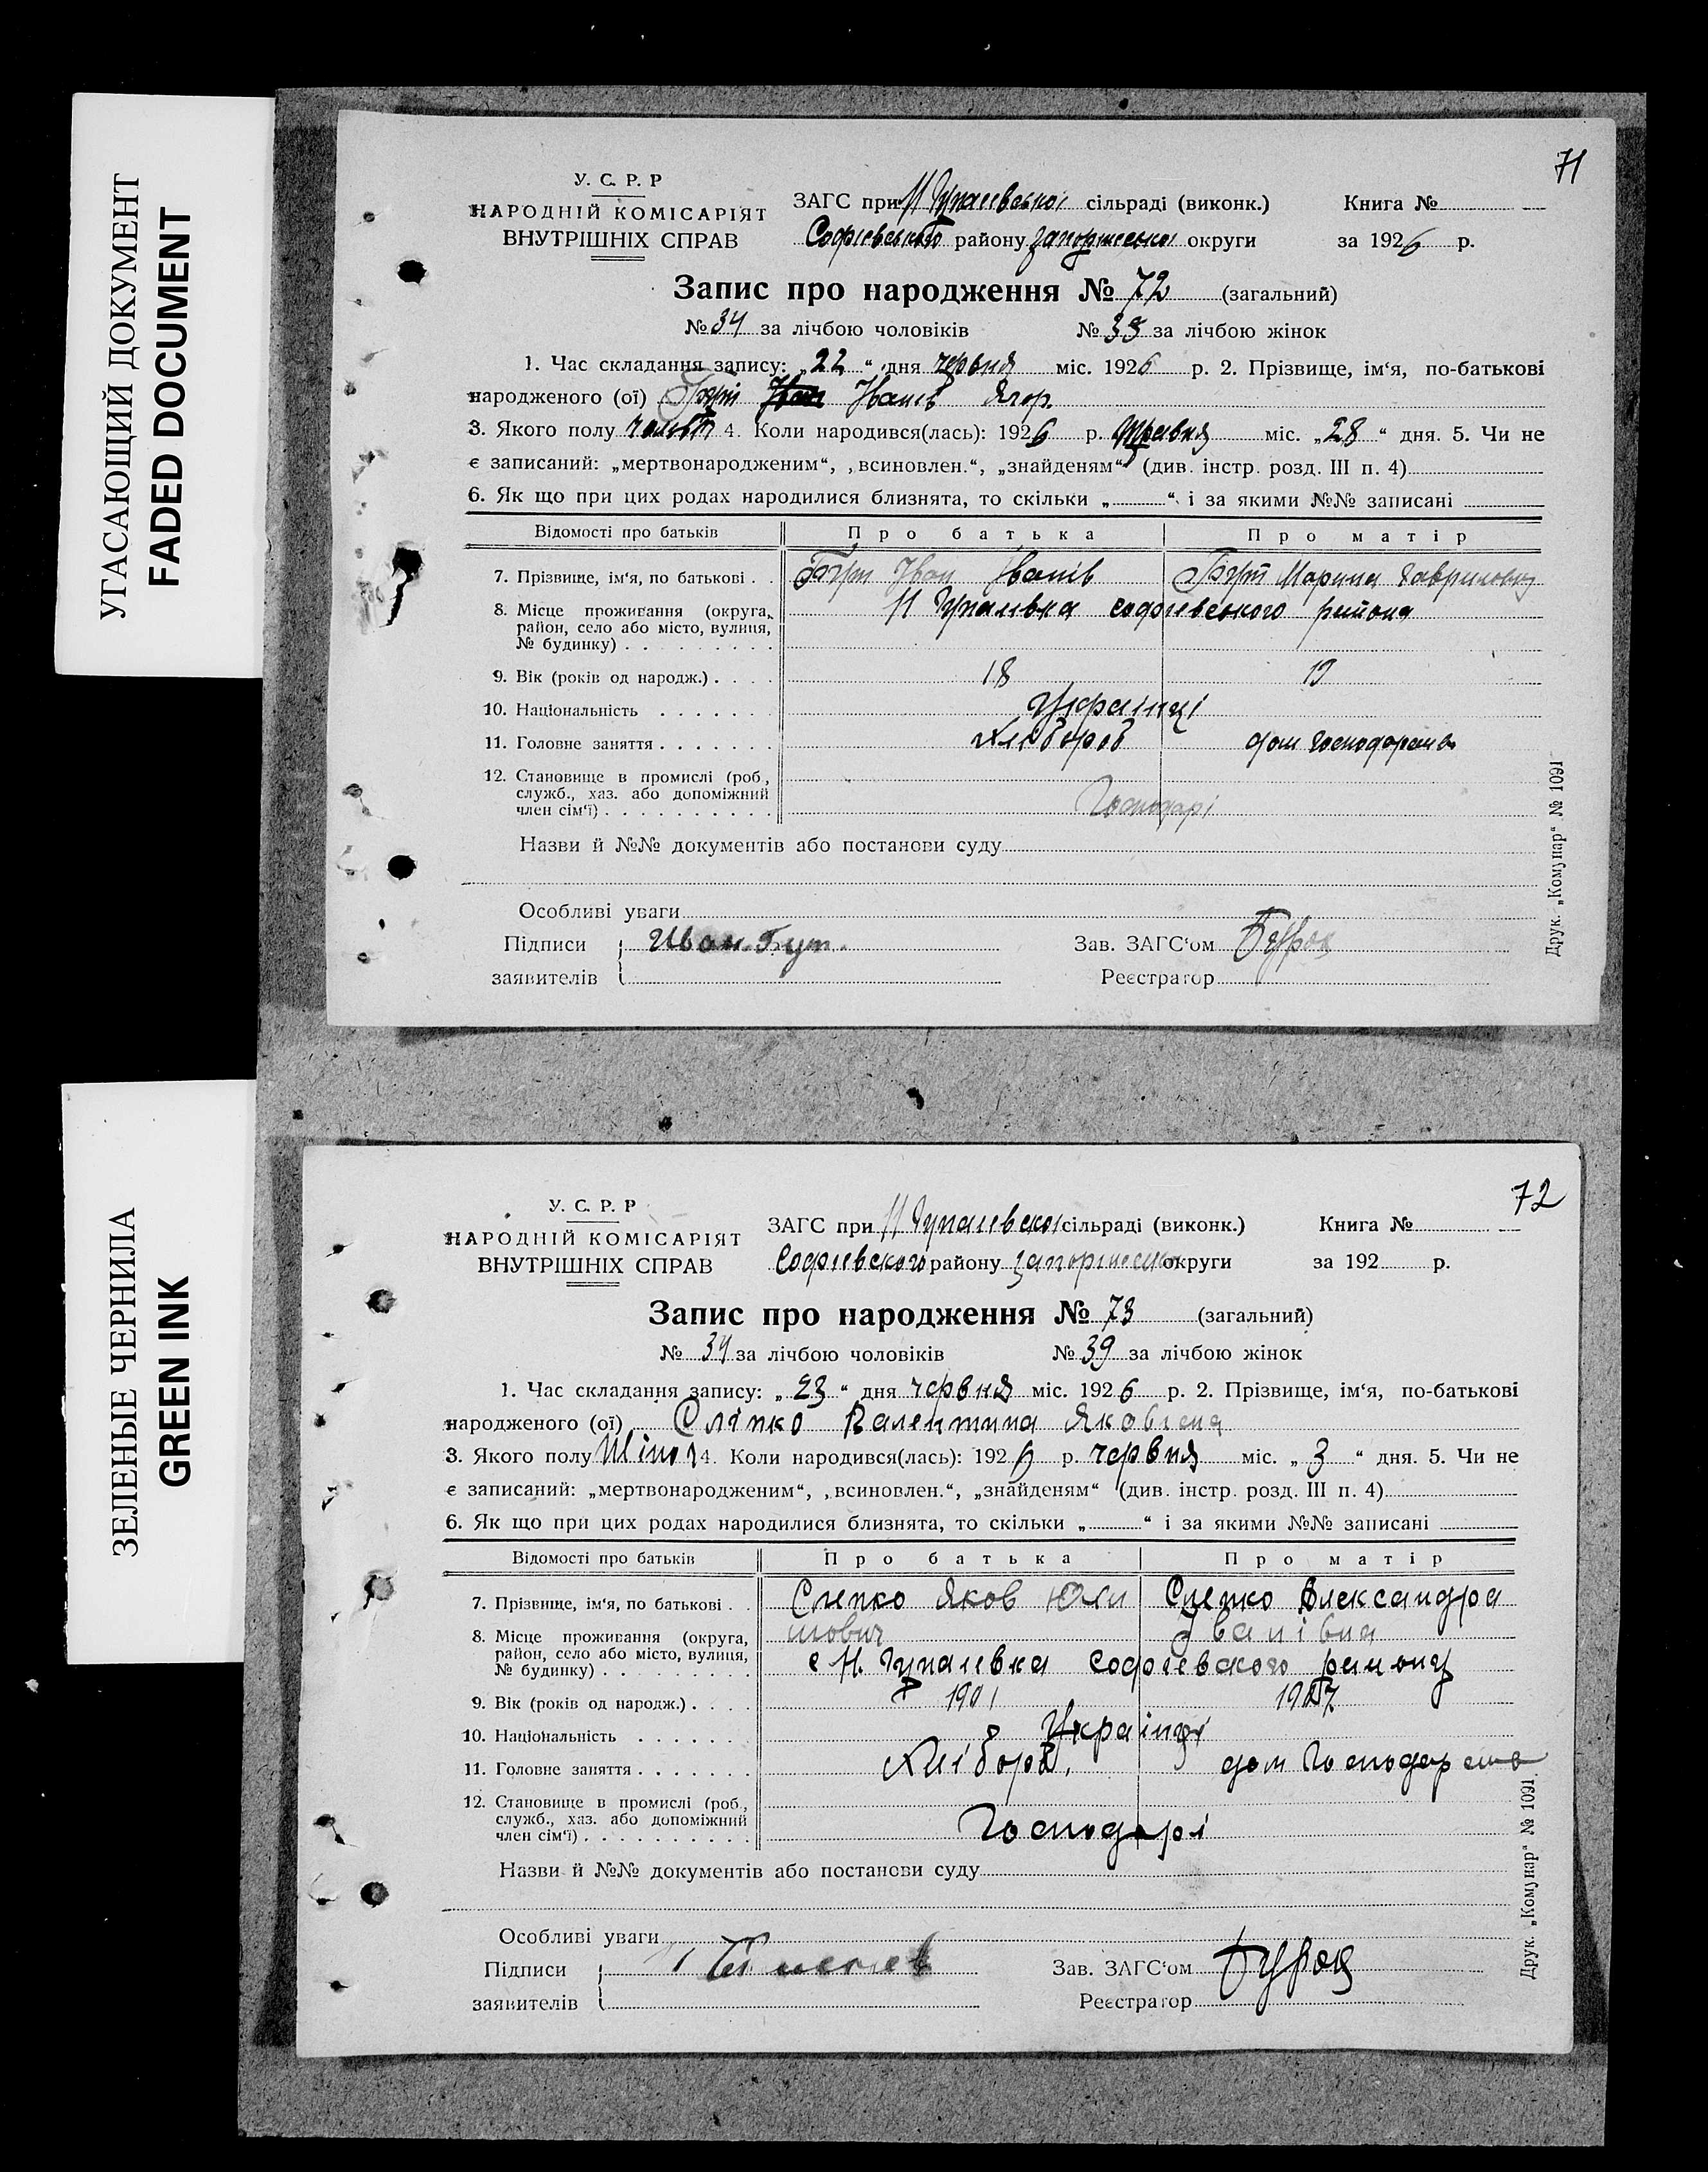 УГАСАЮЩИЙ ДОКУМЕНТ
FADED DOCUMENT
71
У. С. Р. Р
НАРОДНІЙ КОМІСАРІЯТ
ВНУТРІШНІХ СПРАВ
ЗАГС при сільраді (виконк.) Книга №
Софіевського району запоржської округи за 1926 р.
Запис про народження № 72 (загальний)
№ 34 за лічбою чоловіків № 38 за лічбою жінок
1. Час складання запису: „22“ дня червня міс. 1926 р. 2. Прізвище, ім‘я, по-батькові
народженого (ої) Бут Іванів
3. Якого полу 4. Коли народився(лась): 1926 р. травня міс. „28“ дня. 5. Чи не
є записаний: „мертвонародженим“, „всиновлен.“, „знайденям“ (див. інстр. розд. III п. 4)
6. Як що при цих родах народилися близнята, то скільки „ “ і за якими №№ записані
Відомості про батьків Про батька Про матір
7. Прізвище, ім‘я, по батькові . . Бут Іван Іванів Бут Марина Гавриловна
8. Місце проживання (округа, район, село або місто, вулиця, № будинку) Н Гупалівка софіевського района
9. Вік (років од народж.) 18 19
10. Національність Українці
11. Головне заняття Хлібороб дом господарств
12. Становище в промислі (роб., служб., хаз. або допоміжний член сім‘ї) Господарі
Назви й №№ документів або постанови суду
Особливі уваги
Підписи Иван Бут. Зав. ЗАГС‘ом
заявителів Реєстратор
Друк. „Комунар“ № 1091
ЗЕЛЕНЫЕ ЧЕРНИЛА
GREEN INK
72
У. С. Р. Р
НАРОДНІЙ КОМІСАРІЯТ
ВНУТРІШНІХ СПРАВ
ЗАГС при сільраді (виконк.) Книга №
Софіевского району округи за 192 р.
Запис про народження № 73 (загальний)
№ 34 за лічбою чоловіків № 39 за лічбою жінок
1. Час складання запису: „23“ дня червня міс. 1926 р. 2. Прізвище, ім‘я, по-батькові
народженого (ої) Сліпко Валентина Яковлена
3. Якого полу 4. Коли народився(лась): 1926 р. червня міс. „3“ дня. 5. Чи не
є записаний: „мертвонародженим“, „всиновлен.“, „знайденям“ (див. інстр. розд. III п. 4)
6. Як що при цих родах народилися близнята, то скільки „ “ і за якими №№ записані
Відомості про батьків Про батька Про матір
7. Прізвище, ім‘я, по батькові . . Слепко Яков Слепко Александра
Іванівна
8. Місце проживання (округа, район, село або місто, вулиця, № будинку) с Н. Гупалевка Софіевского району
9. Вік (років од народж.) 1901
10. Національність Українці
11. Головне заняття Хлібороб. дом Господарств
12. Становище в промислі (роб., служб., хаз. або допоміжний член сім‘ї) Господарі
Назви й №№ документів або постанови суду
Особливі уваги
Підписи Зав. ЗАГС‘ом
заявителів Реєстратор
Друк. „Комунар“ № 1091